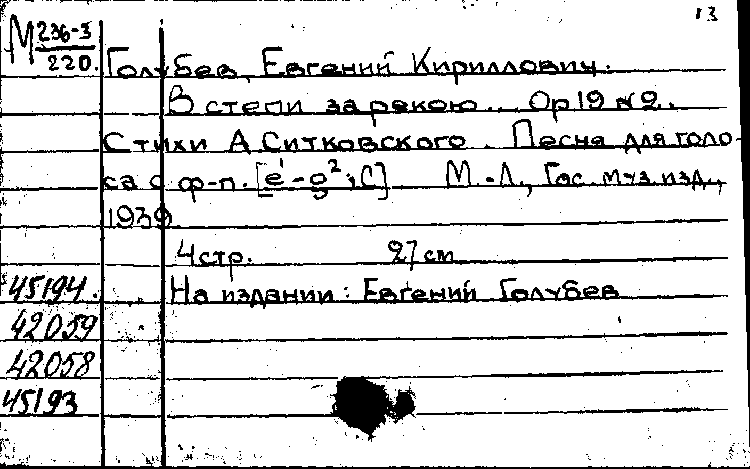 13
М 236-3
220.
Голубев, Евгений Кириллович.
В степи за рекою... Ор 19 № 2.
Стихи А Ситковского. Песня для голо-
са с ф-п. [e¹-g²; C] М.-Л., Гос. муз. изд.,
1939
4 стр. 27 cm
45194. На издании: Евгений Голубев
42059
42058
45193